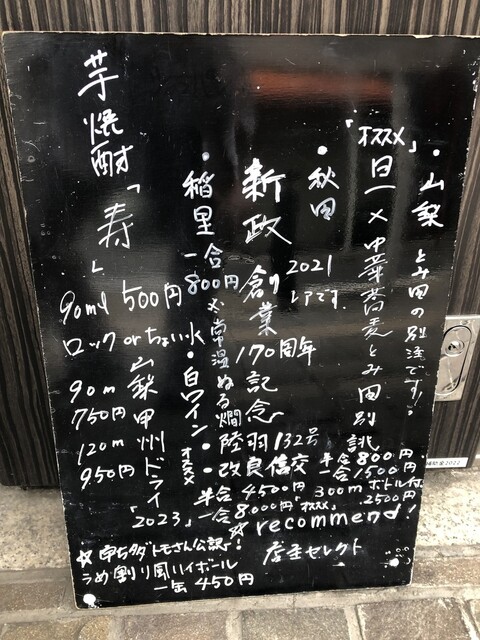 ・山梨 とみ田の別注です!
「オススメ」 旦一×中華蕎麦とみ田別誂
半合800円
一合1500円
300mボトル付
2500円
・秋田 2021 レアです。
新政 創業170周年記念
・陸羽132号
・改良信交
半合4500円
一合8000円
オススメ
☆recommend!
店主セレクト
・稲里 一合800円 〆常温ぬる燗
・白ワイン オススメ
山梨甲州ドライ「2023」
90m
750円
120m
950円
芋焼酎「寿」
90ml 500円
ロックorちょい水
☆串打ダトモさん公認!
うめ割り風ハイボール
一缶450円
補助金2022